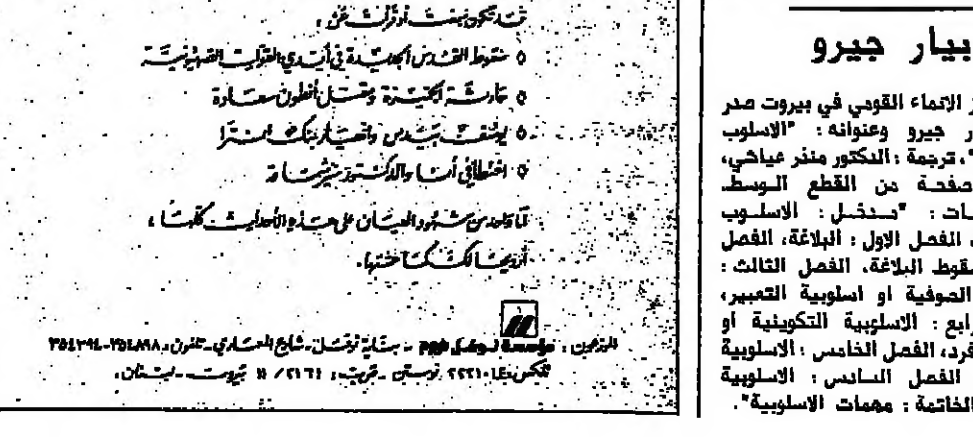 بيار جيرو
الانماء القومي في بيروت صدر
جيرو وعنوانه : "الاسلوب
"، ترجمة : الدكتور منذر عياشي،
صفحة من القطع الوسط
ات : "مدخل : الاسلوب
، الفصل الاول : البلاغة، الفصل
سقوط البلاغة، الفصل الثالث :
الصوفية او اسلوبية التعبير،
رابع : الاسلوبية التكوينية او
فرد، الفصل الخامس : الاسلوبية
الفصل السادس : الاسلوبية
الخاتمة : مهمات الاسلوبية".
قد تكون سمعت أو قرأت عن :
سقوط القدس الجديدة في أيدي القوات الصهيونية
حادثة الكنيسة ومقتل أنطون سعادة
يوسف بيدس وانهيار بنك انترا
أنا واحد من شهود العيان على هذه الأحداث كلها ،
أرويها لك كما عشتها.
الموزعين : مؤسسة نوفل - بناية نوفل - شارع المعماري - تلفون: ٣٥٤٨٩٨-٣٥٤٣٩٤
تلكس: ٢٢٢١٠LE نوفستن - ص.ب: ٢١٦١ / ١١ بيروت - لبنان.